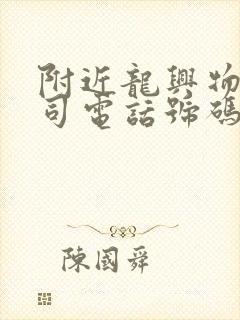 附近龍興物
司電話號碼
陳國舜